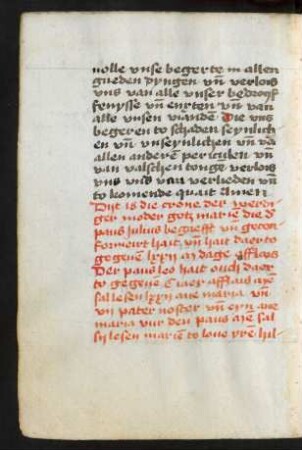 volle vnse begerte in allen
gueden dyngen vn̄ verlois
vns van alle vnser bedroyf
fenysse vn̄ enxten vn̄ van
alle vnsen vianden Die vns
begeren to schaden seynlich
en vn̄ vnseynlichen vn̄ vā
allen anderē periculen vn̄
van valschen tonge verlois
vns vnd van verlieden vn̄
to komende quait Amen
Dyt is die crone der werdi
ger moder gotz marie die d
paus Julius begrefft vn̄ gecon
formeirt hait vn̄ hait daer to
gegeuē lxxii dage afflais
Der paus leo hait ouch daer
to gegeuē afflais mē
sal lesen lxxii aue maria vn̄
vii pater noster vn̄ eyn aue
maria vur den paus mē sal
sij lesen mariē to loue yrē lūl